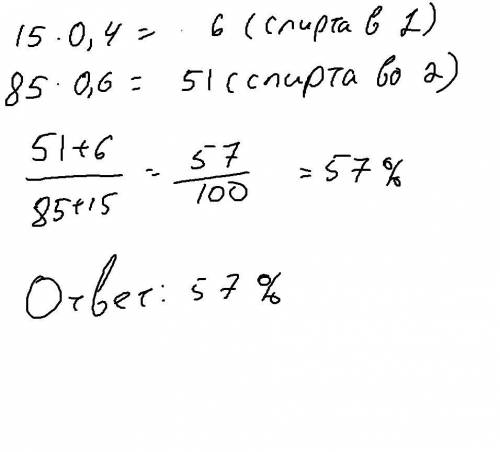 15 · 0,4 = 6 (спирта в 1)
85 · 0,6 = 51 (спирта во 2)
51+6 / 85+15 = 57 / 100 = 57 %
Ответ: 57 %